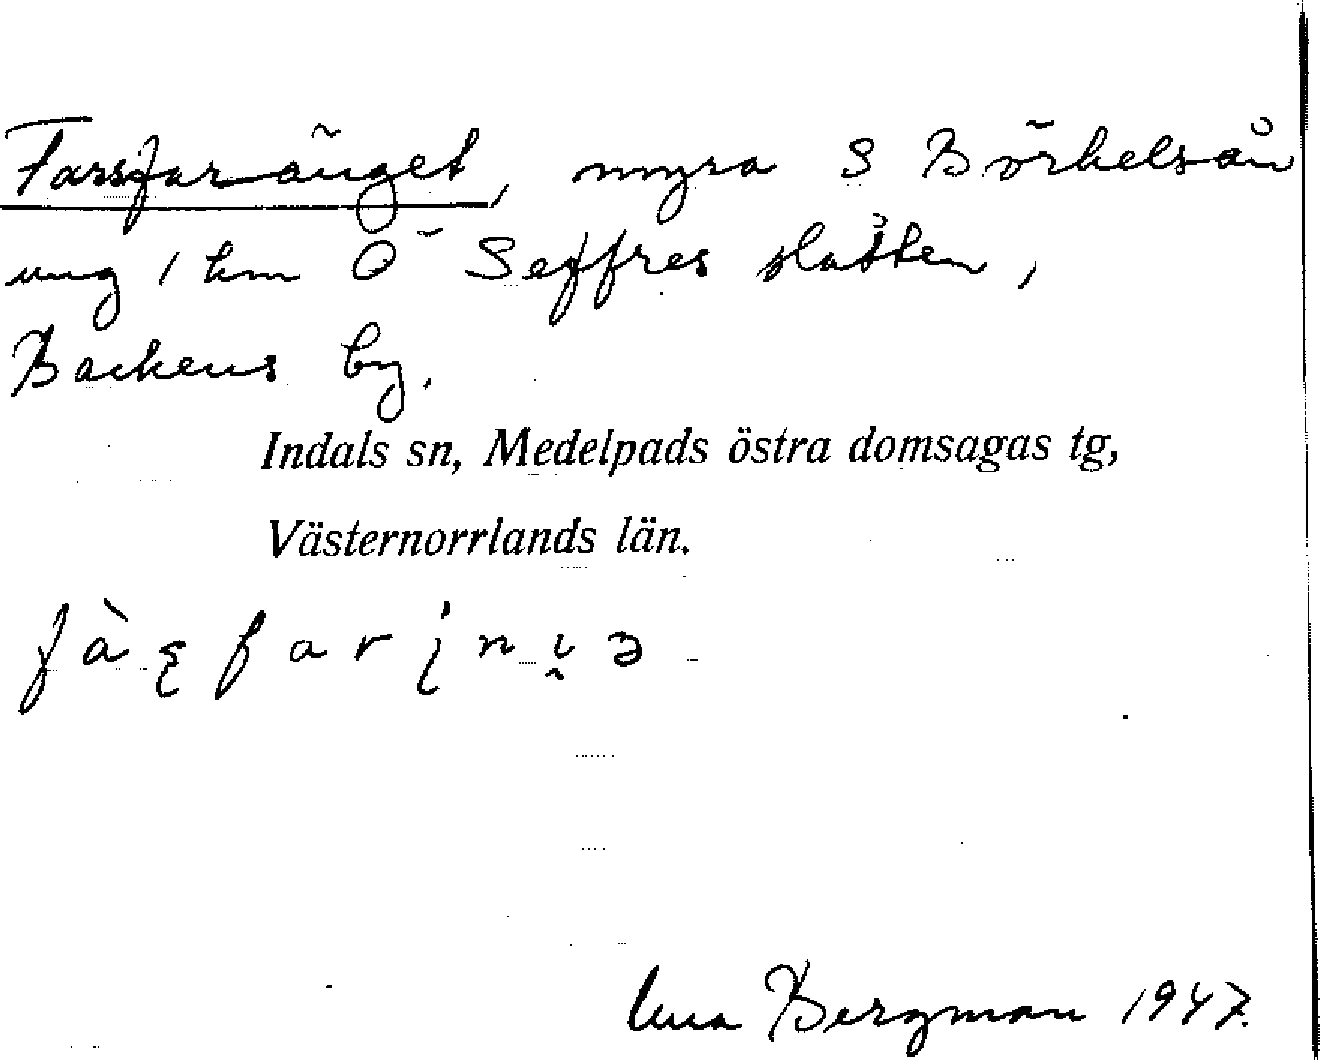 Farsfaränget, myra S Börkelsån
ung 1 km Ö Seffres slåtten,
Backens by.
Indals sn, Medelpads östra domsagas tg,
Västernorrlands län.
Bergman 1947.